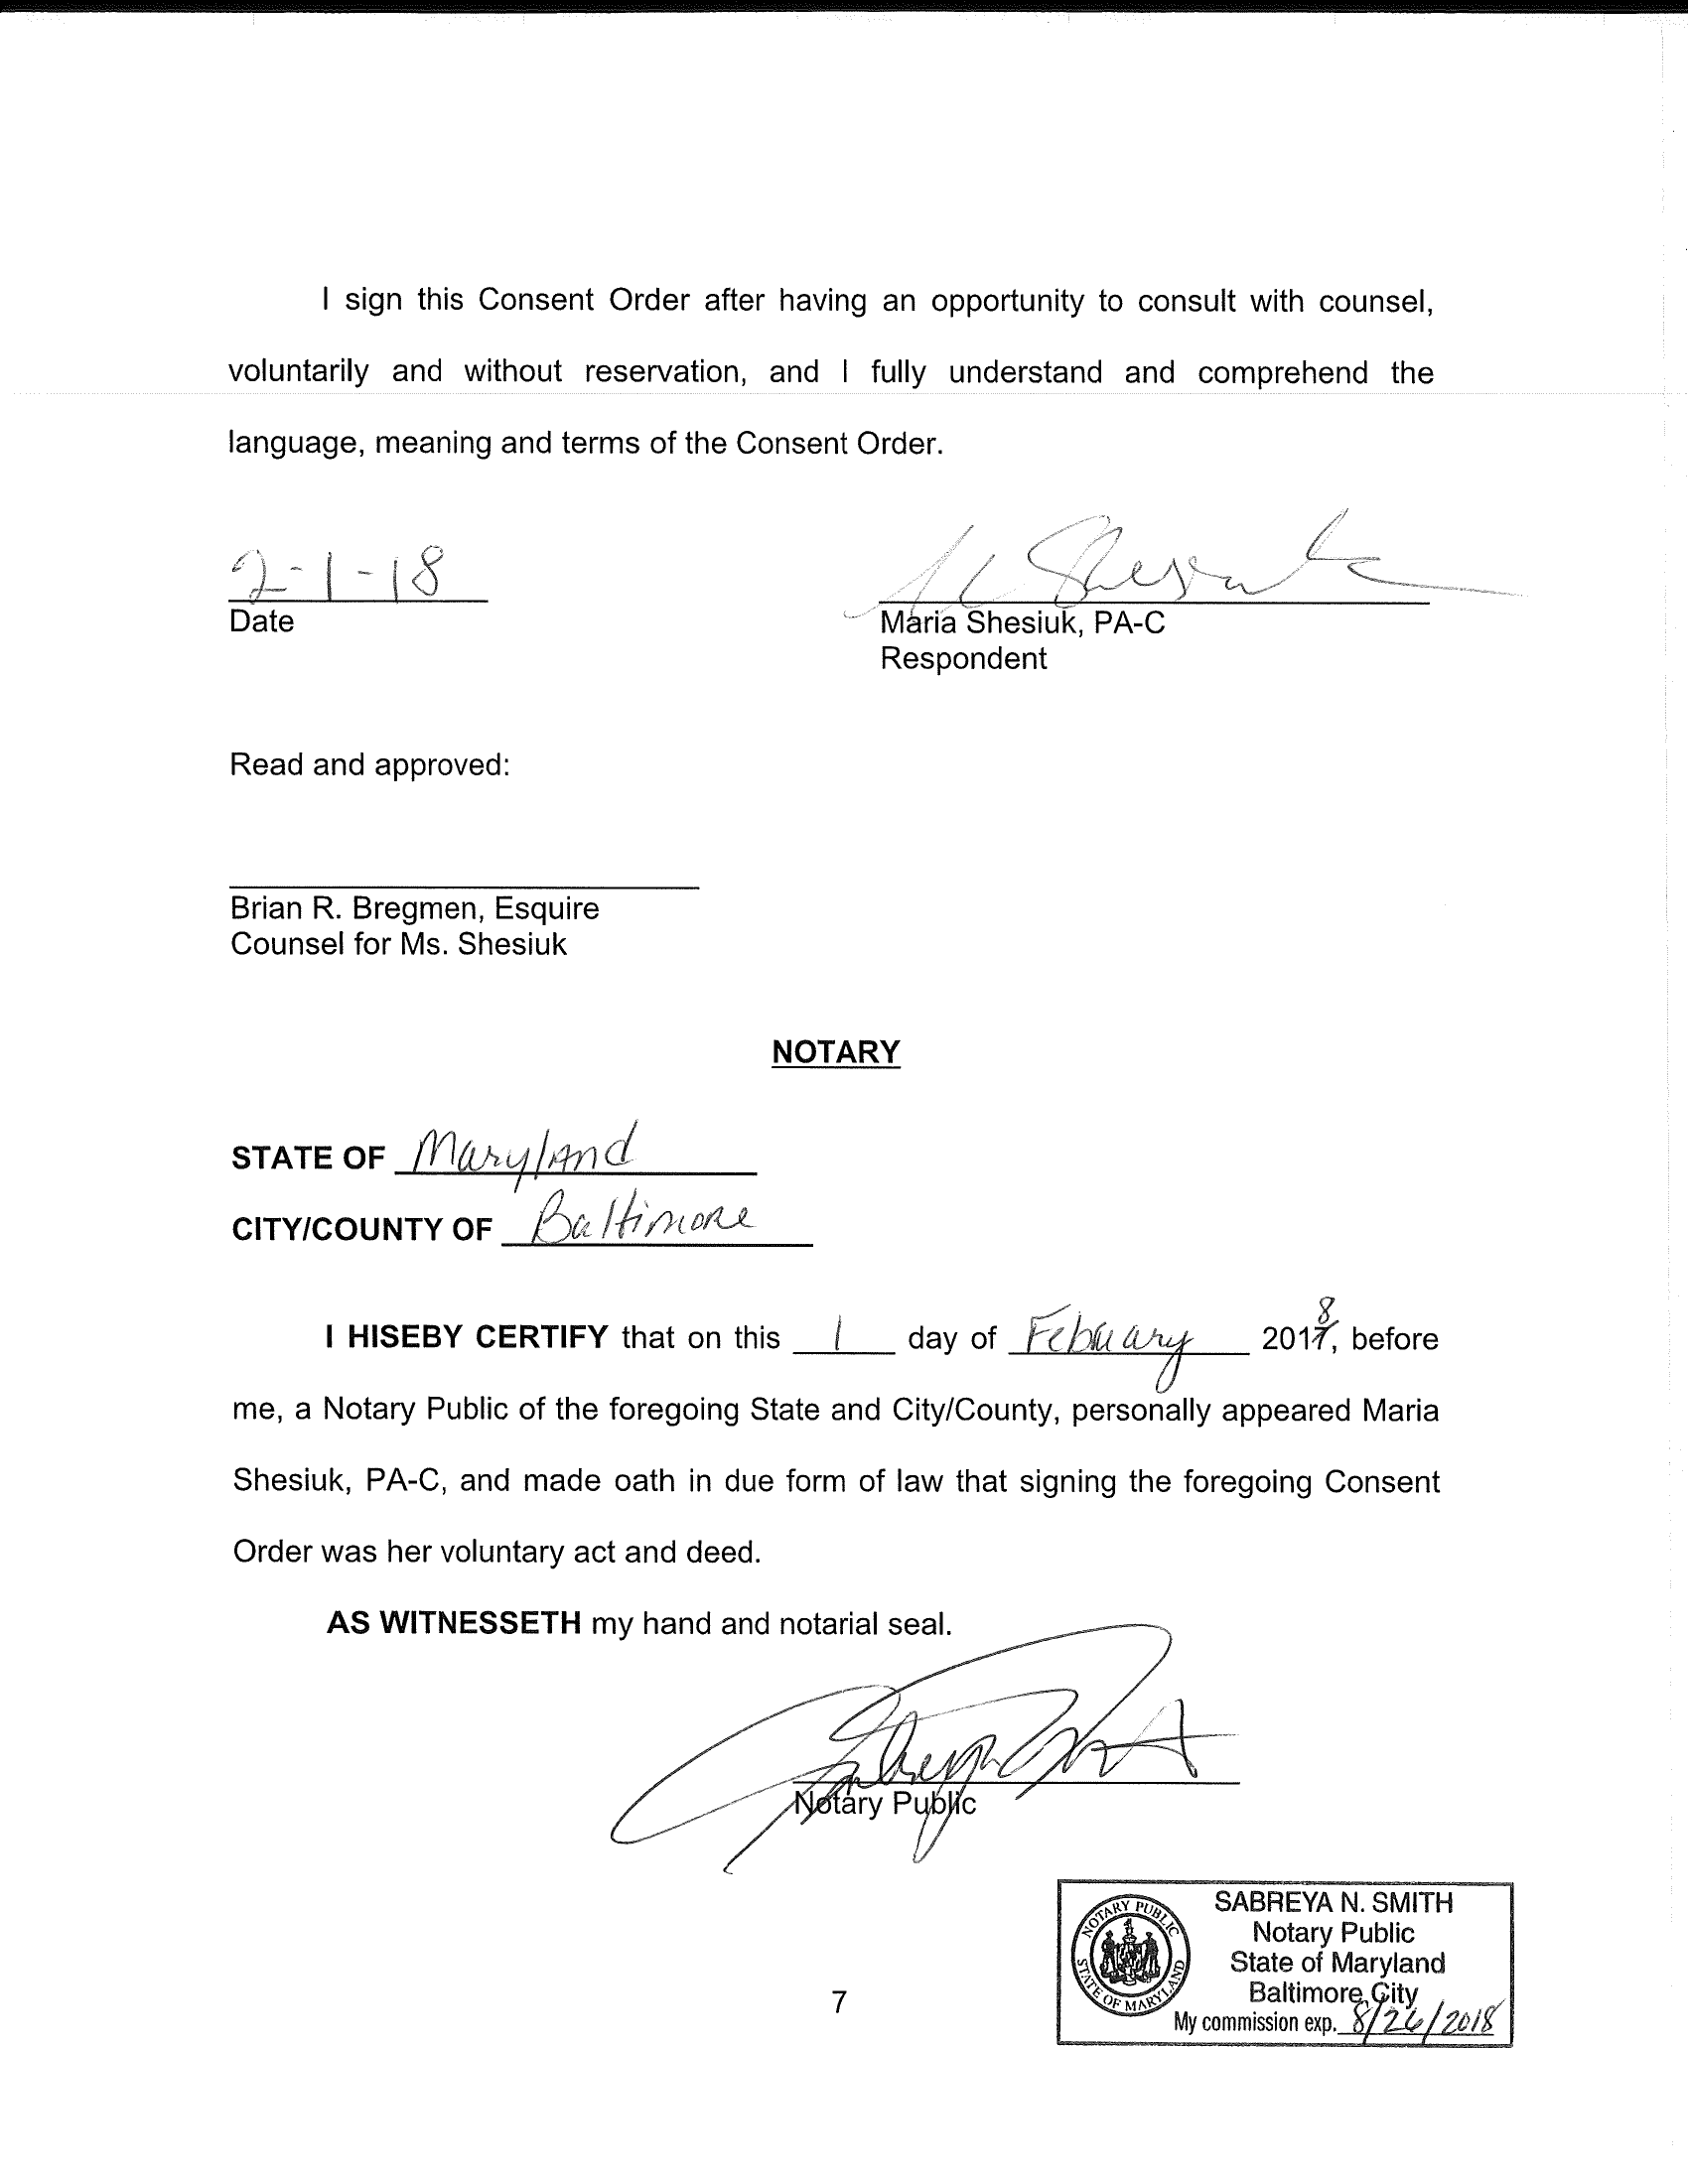 I sign this Consent Order after having an opportunity to consult with counsel,
voluntarily and without reservation, and I fully understand and comprehend the
language, meaning and terms of the Consent Order.
2-1-18
Date
Maria Shesiuk, PA-C
Respondent
Read and approved:
Brian R. Bregmen, Esquire
Counsel for Ms. Shesiuk
NOTARY
STATE OF Maryland
CITY/COUNTY OF Baltimore
I HISEBY CERTIFY that on this 1 day of February 2018, before
me, a Notary Public of the foregoing State and City/County, personally appeared Maria
Shesiuk, PA-C, and made oath in due form of law that signing the foregoing Consent
Order was her voluntary act and deed.
AS WITNESSETH my hand and notarial seal.
Notary Public
NOTARY PUBLIC
STATE OF MARYLAND
SABREYA N. SMITH
Notary Public
State of Maryland
Baltimore City
My commission exp. 8/26/2018
7